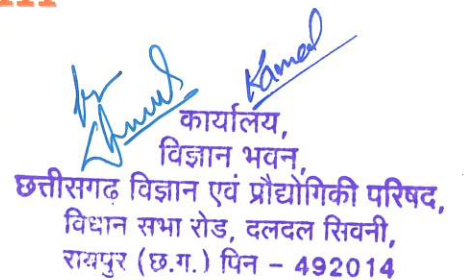 Kamal
कार्यालय,
विज्ञान भवन,
छत्तीसगढ़ विज्ञान एवं प्रौद्योगिकी परिषद,
विधान सभा रोड, दलदल सिवनी,
रायपुर (छ.ग.) पिन – 492014